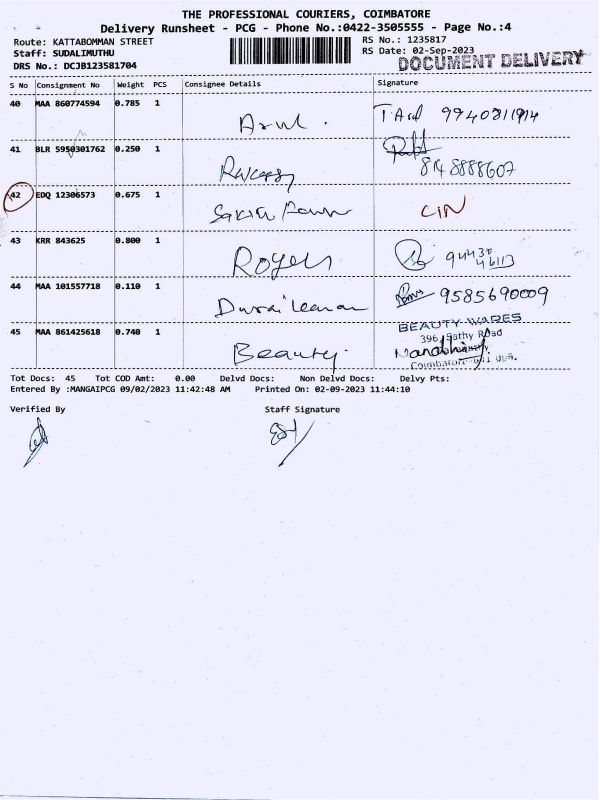 THE PROFESSIONAL COURIERS, COIMBATORE
Delivery Runsheet - PCG - Phone No.:0422-3505555 - Page No.:4
Route: KATTABOMMAN STREET
RS No.: 1235817
Staff: SUDALIMUTHU
RS Date: 02-Sep-2023
DRS No.: DCJB123581704
DOCUMENT DELIVERY
S No Consignment No Weight PCS Consignee Details Signature
40 MAA 860774594 0.785 1 Arul. 9940811914
41 BLR 5950301762 0.250 1
42 EDQ 12306573 0.675 1 CIN
43 KRR 843625 0.800 1 Royers 94430 46113
44 MAA 101557718 0.110 1 9585690009
45 MAA 861425618 0.740 1 Beauty.
BEAUTY WARES
396, Sathy Road
Coimbatore
Tot Docs: 45 Tot COD Amt: 0.00 Delvd Docs: Non Delvd Docs: Delvy Pts:
Entered By :MANGAIPCG 09/02/2023 11:42:48 AM Printed On: 02-09-2023 11:44:10
Verified By Staff Signature